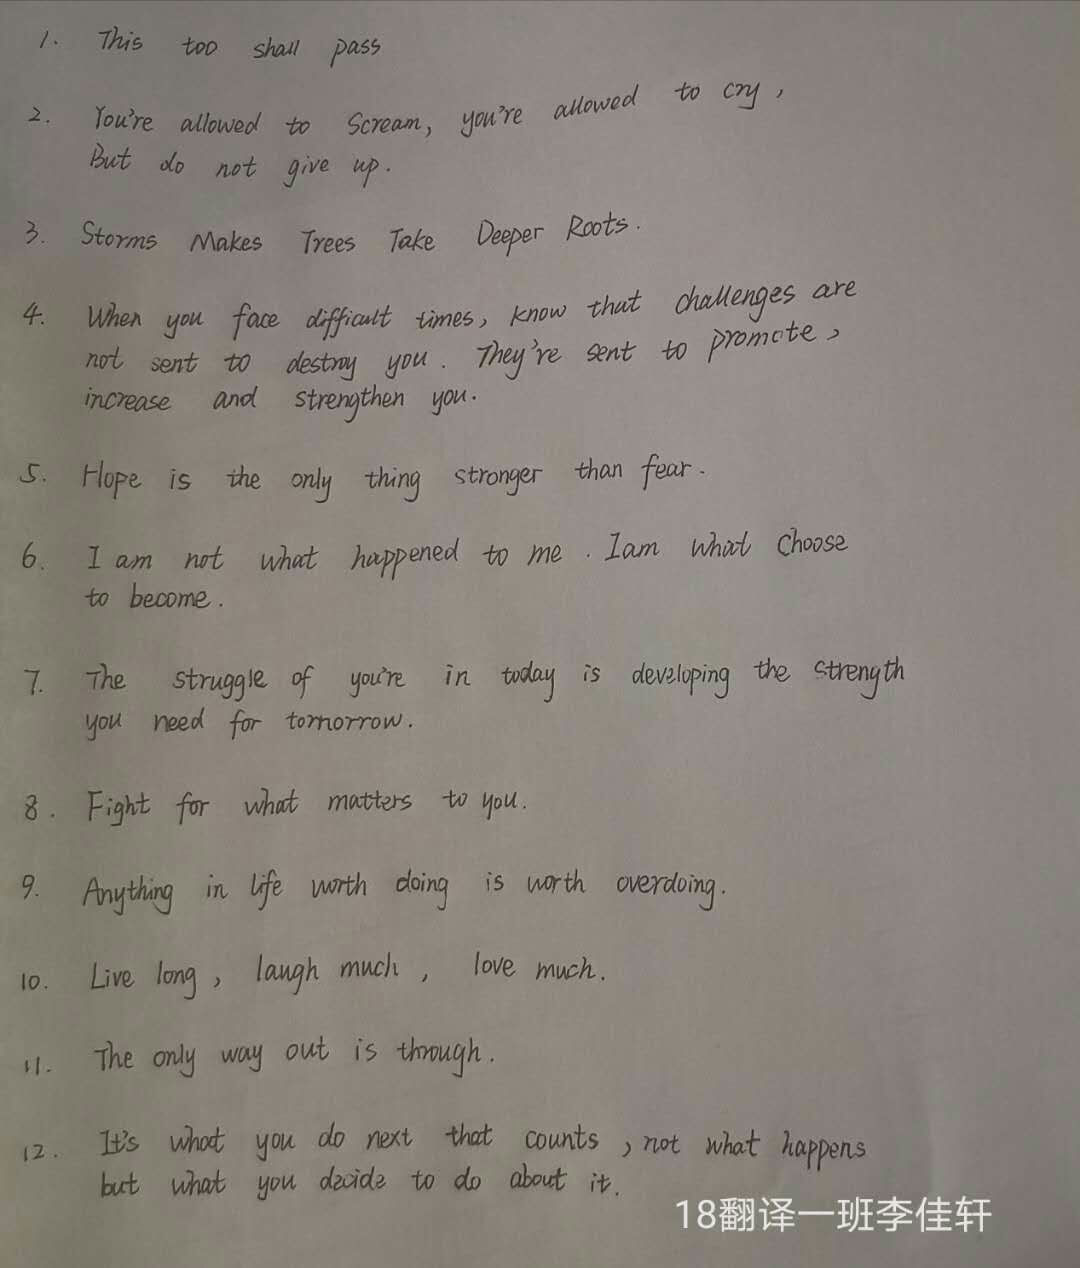 1. This too shall pass
2. You're allowed to scream, you're allowed to cry,
But do not give up.
3. Storms Makes Trees Take Deeper Roots.
4. When you face difficult times, know that challenges are
not sent to destroy you. They're sent to promote,
increase and strengthen you.
5. Hope is the only thing stronger than fear.
6. I am not what happened to me. I am what choose
to become.
7. The struggle of you're in today is developing the strength
you need for tomorrow.
8. Fight for what matters to you.
9. Anything in life worth doing is worth overdoing.
10. Live long, laugh much, love much.
11. The only way out is through.
12. It's what you do next that counts, not what happens
but what you decide to do about it.
18翻译一班李佳轩